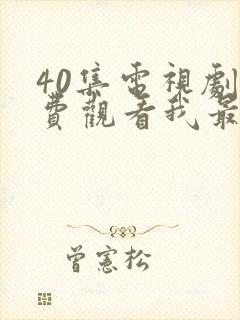 40集電視劇
費觀看我最
曾憲松